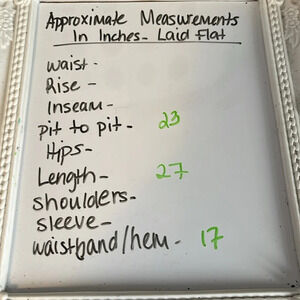 Approximate Measurements
In Inches- Laid Flat
waist -
Rise -
Inseam -
pit to pit - 23
Hips -
Length - 27
shoulders -
sleeve -
waistband/hem - 17